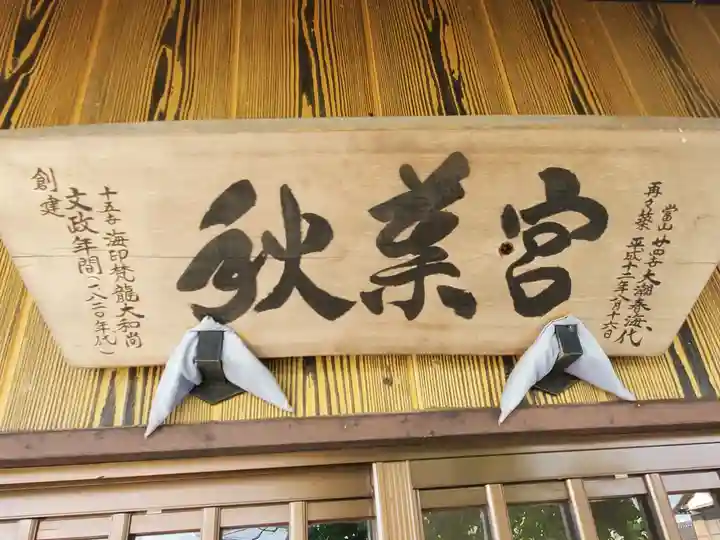 秋葉宮
當山廿四世大潮春海代
再々築 平成十二年八月十六日
十五世海印梵龍大和尚
文政年間(一八二〇年代)
創建